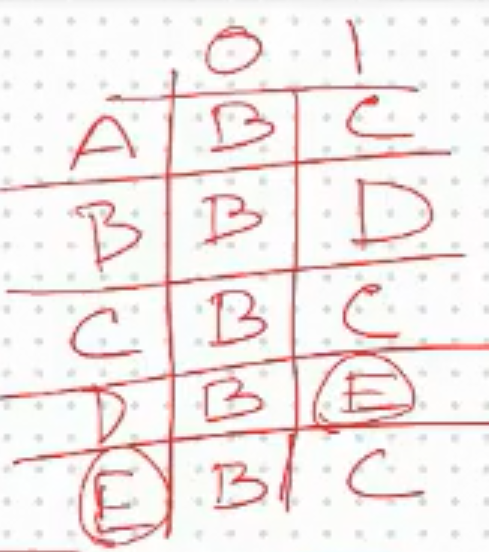 0 1
A B C
B B D
C B C
D B E
E B C